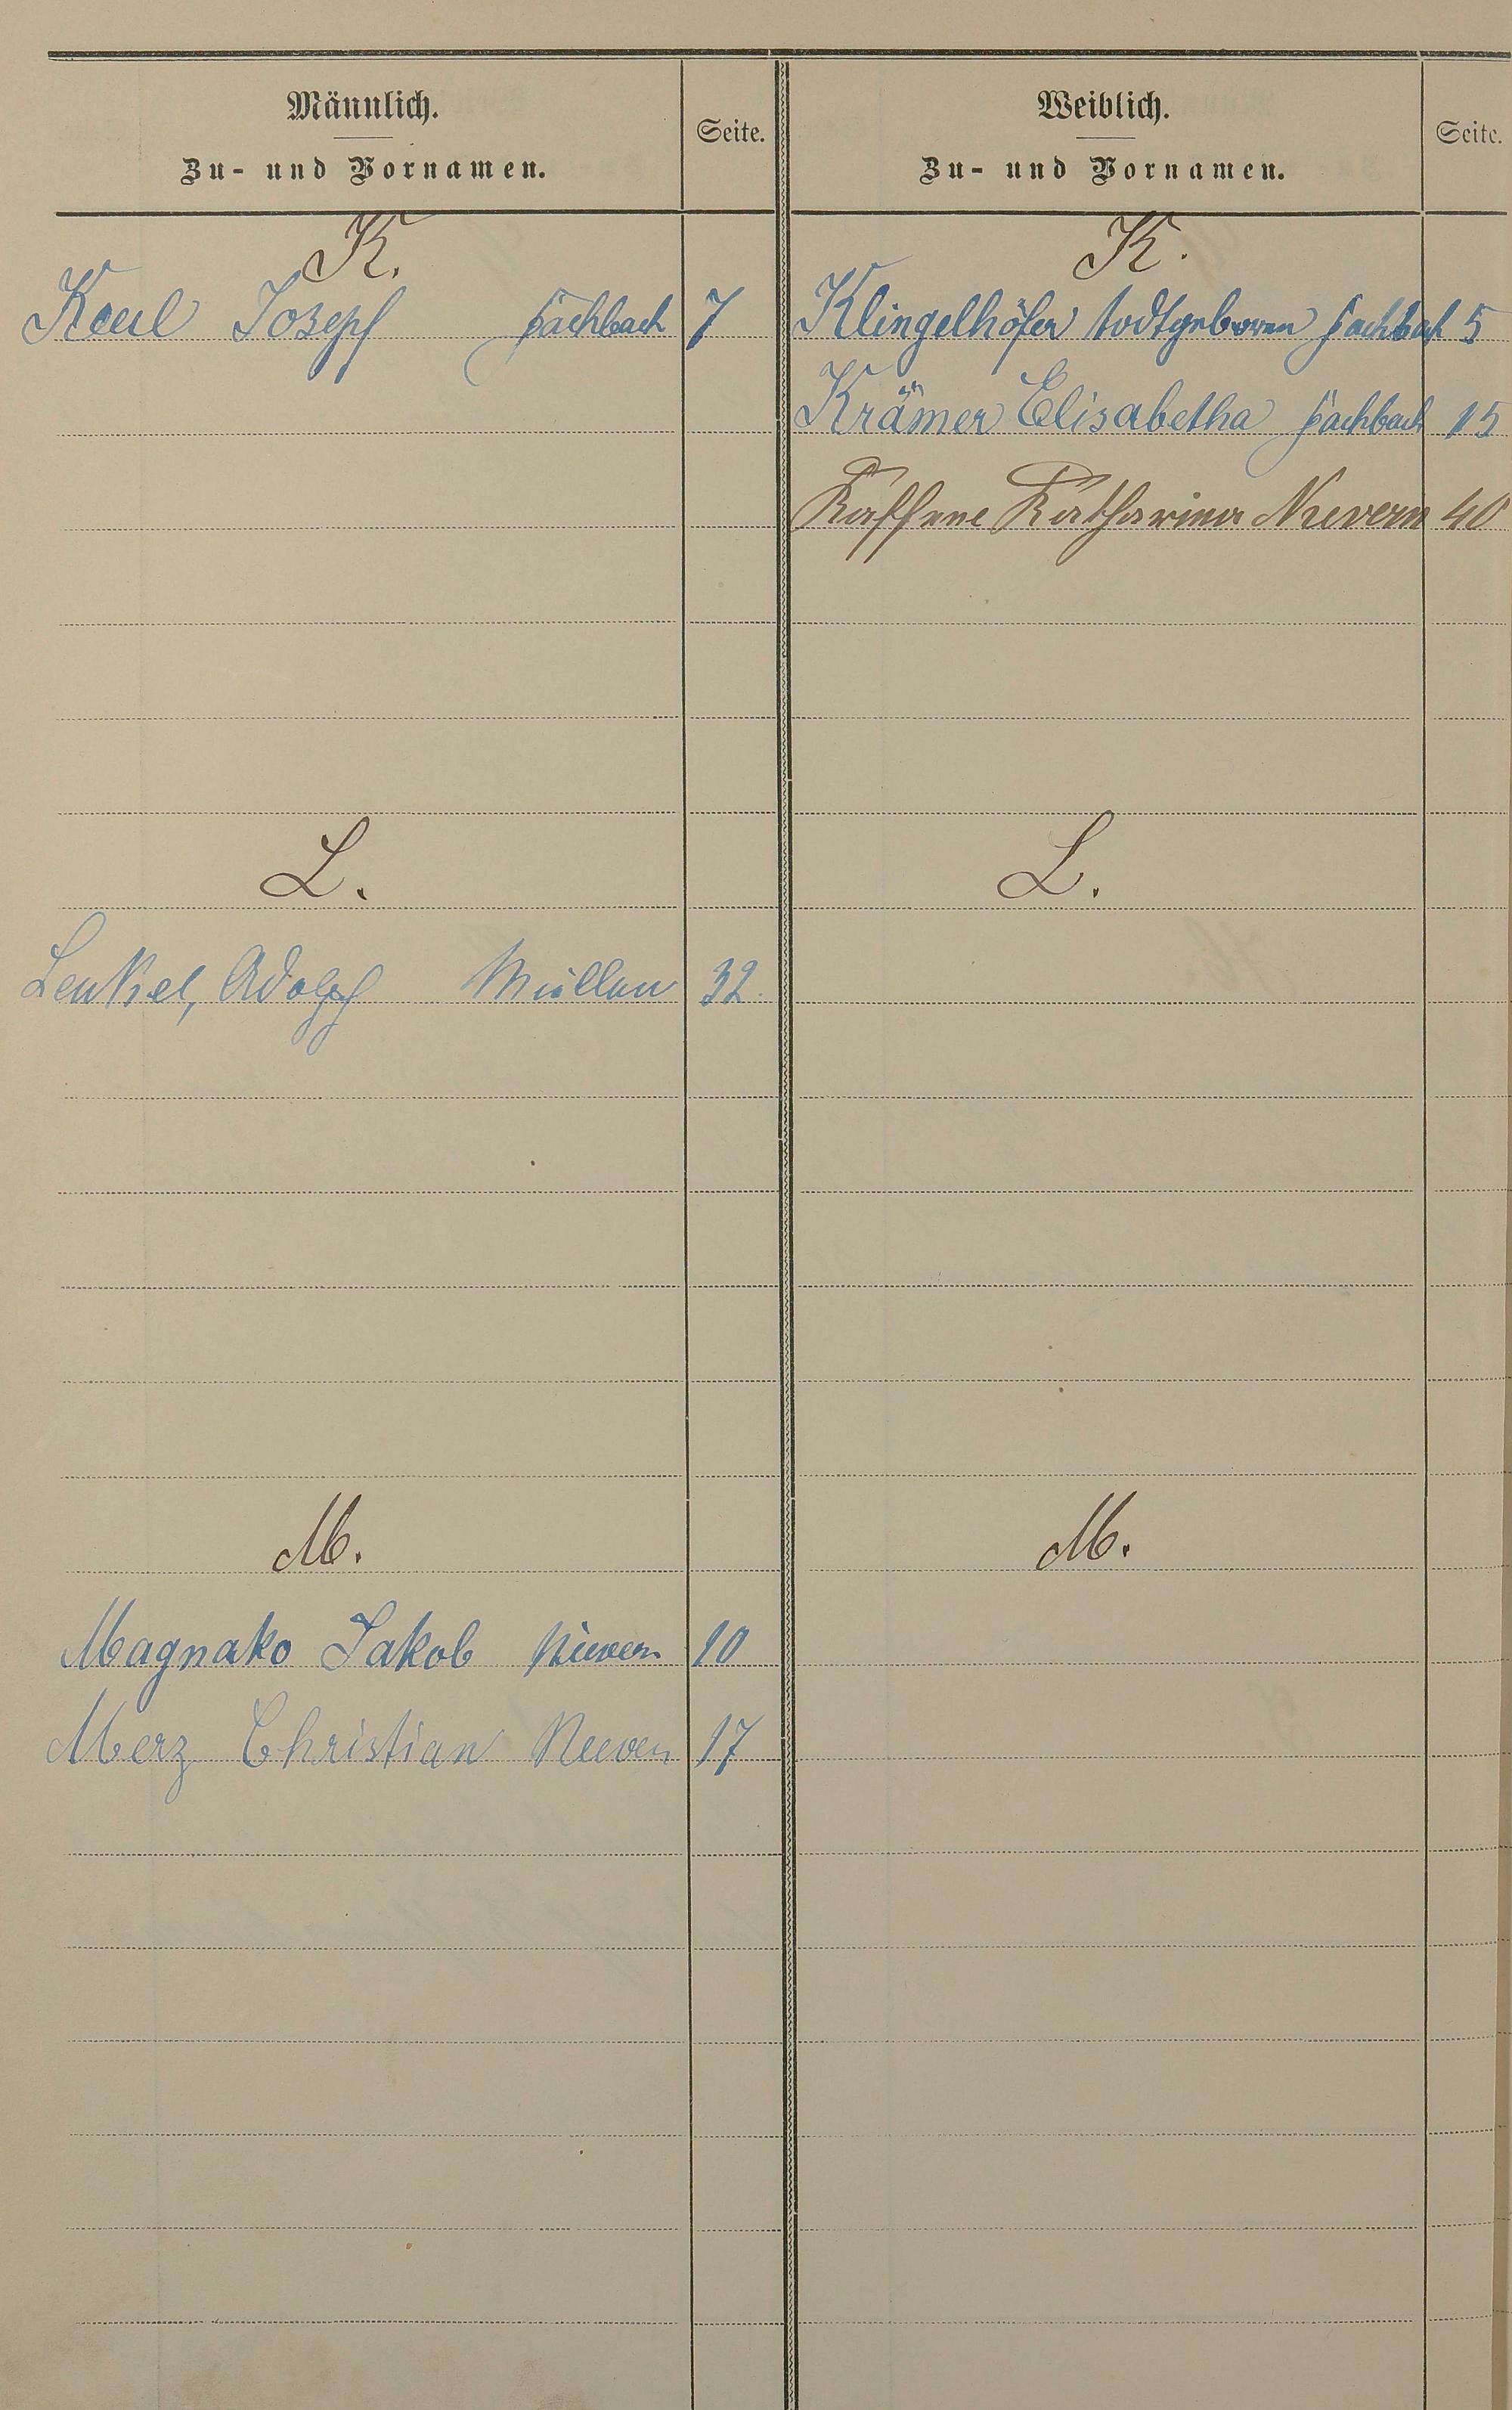 Männlich.
Zu- und Vornamen.
Seite.
Weiblich.
Zu- und Vornamen.
Seite.
K.
Keul Josepf Fachbach 7
K.
Klingelhöfer todtgeboren Fachbach 5
Krämer Elisabetha Fachbach 15
Katharina Nievern 40
L.
Lenkel, Adolpf 32.
L.
M.
Magnako Jakob Nievern 10
Merz Christian Nievern 17
M.